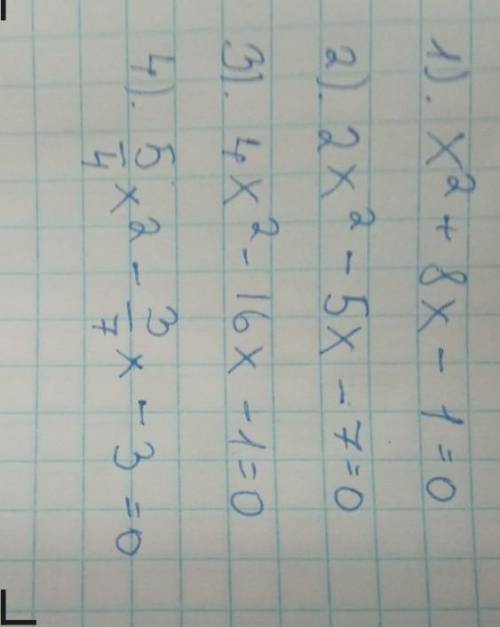 1). x² + 8x - 1 = 0
2). 2x² - 5x - 7 = 0
3). 4x² - 16x - 1 = 0
4). 5/4 x² - 3/7 x - 3 = 0